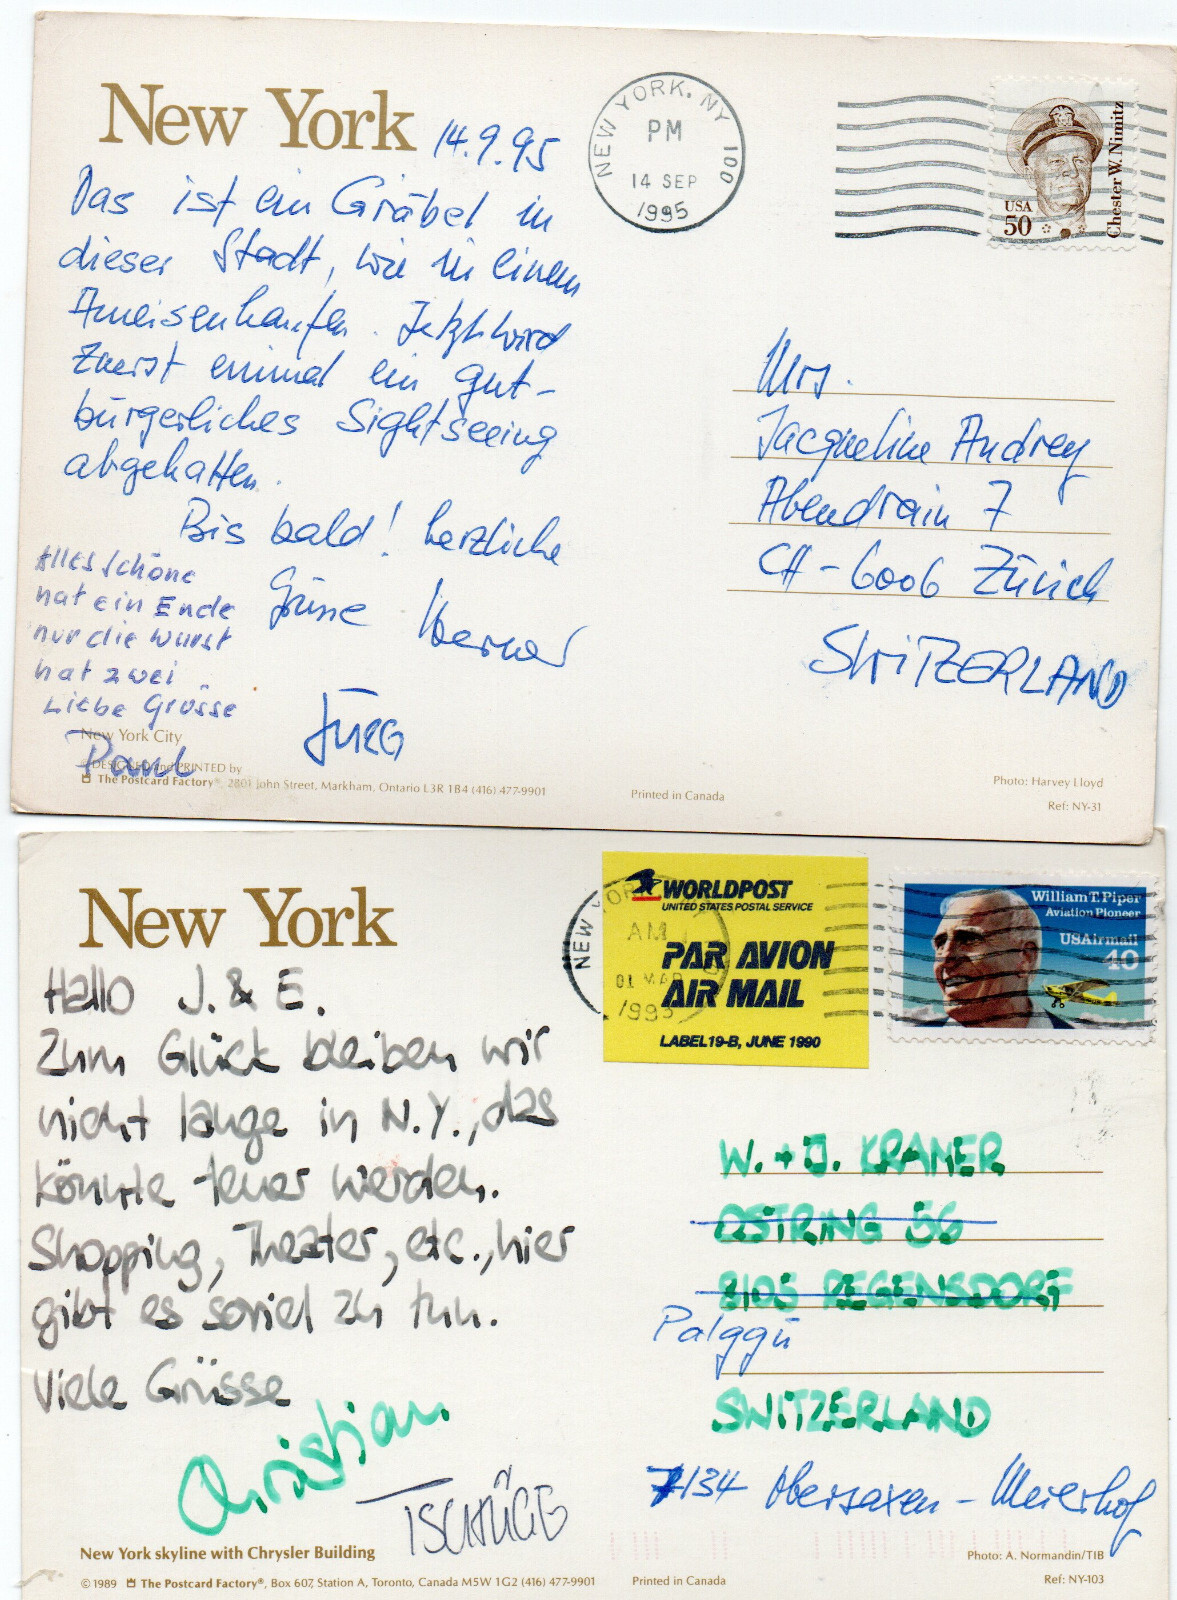 New York
14.9.95
NEW YORK, NY 100
PM
14 SEP
1995
USA
50
Chester W. Nimitz
Das ist ein Gräbel in
dieser Stadt, wie in einem
Ameisenhaufen. Jetzt wird
zuerst einmal ein gut-
bürgerliches Sightseeing
abgehalten.
Bis bald! herzliche
Grüsse Werner
JÜRG
Alles schöne
hat ein Ende
nur die wurst
hat zwei
Liebe Grüsse
Paul
Mrs.
Jacqueline Audrey
Abendrain 7
CH - 6006 Zürich
SWITZERLAND
New York City
DESIGNED and PRINTED by
The Postcard Factory® 2801 John Street, Markham, Ontario L3R 1B4 (416) 477-9901
Printed in Canada
Photo: Harvey Lloyd
Ref: NY-31
New York
WORLDPOST
UNITED STATES POSTAL SERVICE
PAR AVION
AIR MAIL
LABEL 19-B, JUNE 1990
NEW YOR
AM
01 MAR
1993
William T. Piper
Aviation Pioneer
USAirmail
40
Hallo J. & E.
Zum Glück bleiben wir
nicht lange in N.Y., das
könnte teuer werden.
Shopping, Theater, etc., hier
gibt es soviel zu tun.
Viele Grüsse
Christian
TSCHÜGG
W. + J. KRAMER
OSTRING 56
8105 REGENSDORF
Palggü
SWITZERLAND
7134 Obersaxen - Meierhof
New York skyline with Chrysler Building
© 1989 The Postcard Factory®, Box 607, Station A, Toronto, Canada M5W 1G2 (416) 477-9901
Printed in Canada
Photo: A. Normandin/TIB
Ref: NY-103